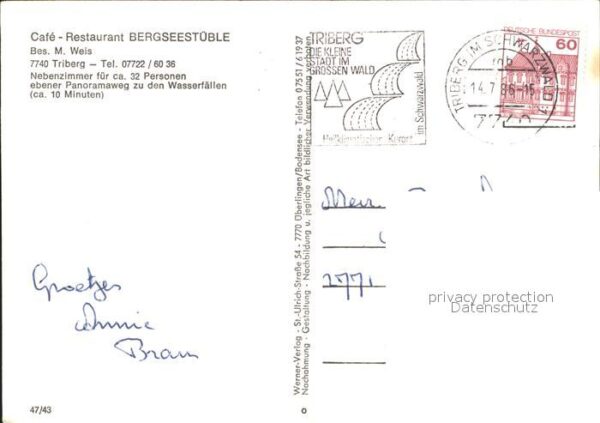 Café - Restaurant BERGSEESTÜBLE
Bes. M. Weis
7740 Triberg – Tel. 07722 / 60 36
Nebenzimmer für ca. 32 Personen
ebener Panoramaweg zu den Wasserfällen
(ca. 10 Minuten)
Groetjes
Annie
Bram
47/43
Werner-Verlag - St.-Ulrich-Straße 54 - 7770 Überlingen/Bodensee - Telefon 07551/61937
Nachahmung - Gestaltung - Nachbildung u. jegliche Art bildlicher Verwertung verboten
TRIBERG
DIE KLEINE
STADT IM
GROSSEN WALD
im Schwarzwald
Heilklimatischer Kurort
TRIBERG IM SCHWARZWALD 1
mb
14.7.86-15
7740
DEUTSCHE BUNDESPOST
60
privacy protection
Datenschutz